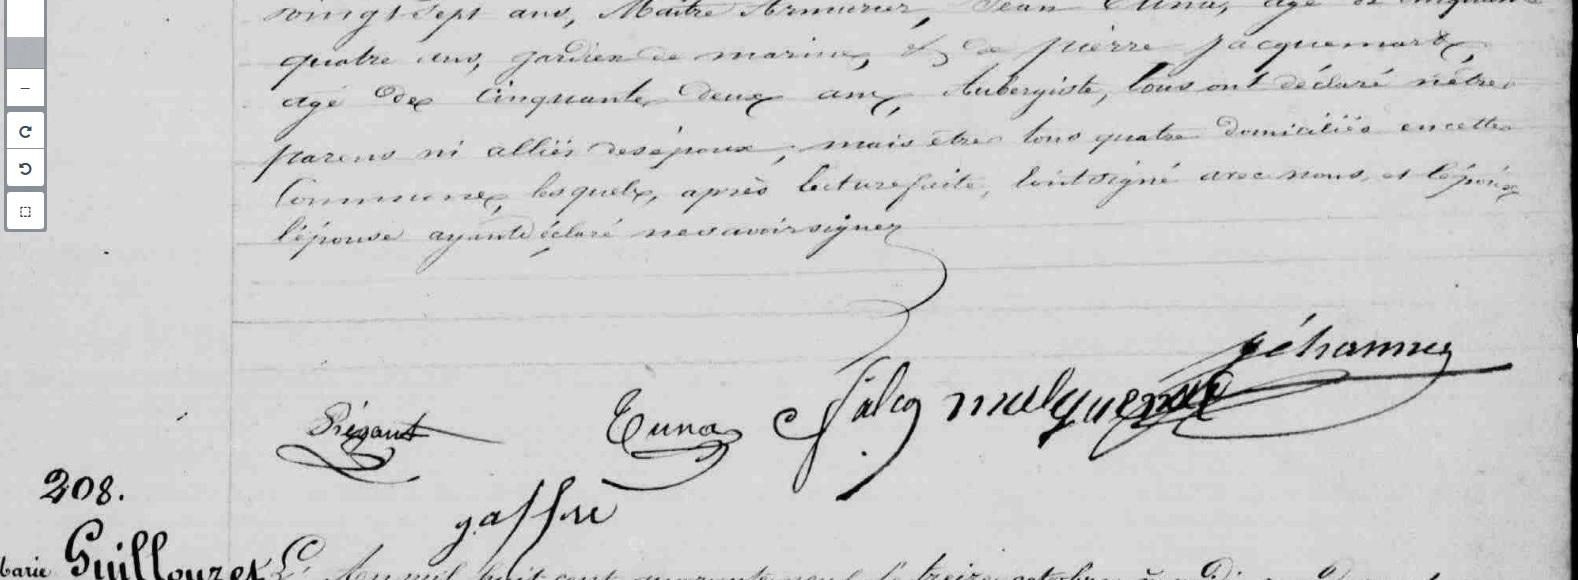 vingt sept ans, Maître Armurier, Jean Cuna, agé de cinquante
quatre ans, gardien de marine, & de pierre Jacquemart,
agé de cinquante deux ans, Aubergiste, tous ont déclaré n'être
parens ni alliés des époux, mais être tous quatre domiciliés en cette
Commune, lesquels, après lecture faite, l'ont signé avec nous, et l'époux
l'épouse ayant déclaré ne savoir signer
géhanne
Prégant Cuna
gaffre
208.
Marie Guillouzet L'An mil huit cent quarante neuf le treize octobre à